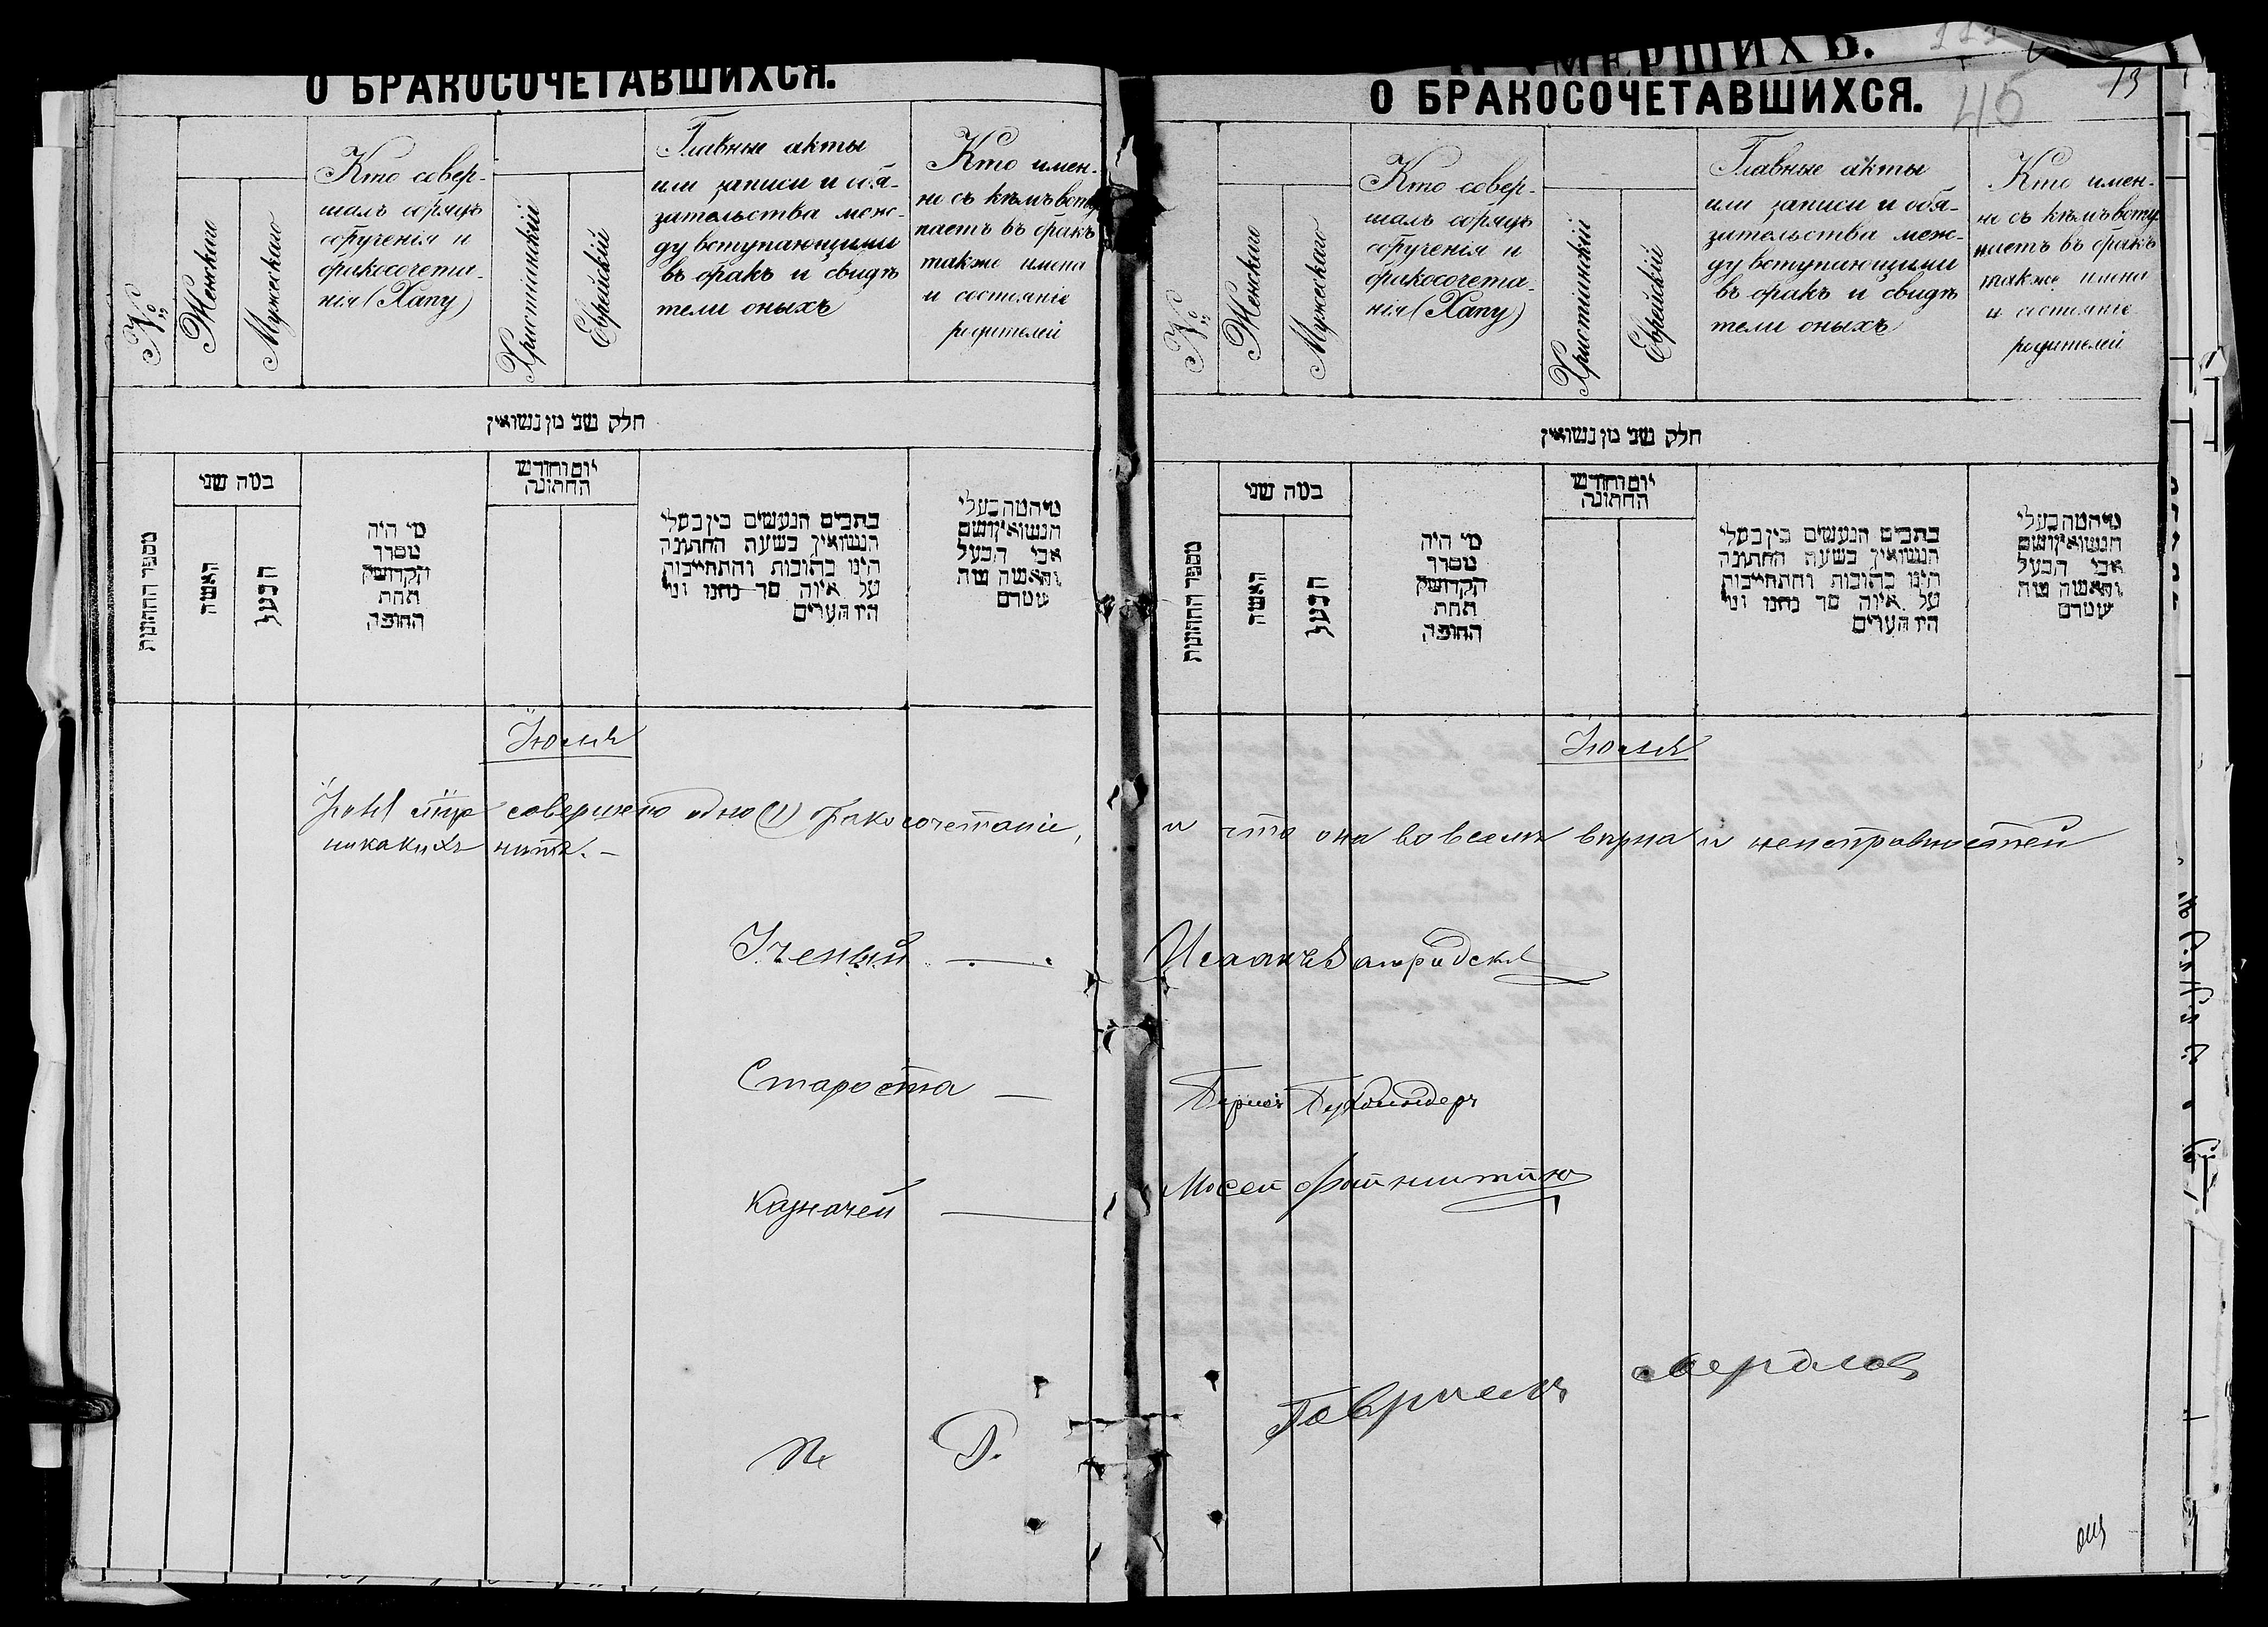 О БРАКОСОЧЕТАВШИХСЯ.
№
Женскаго
Мужескаго
Кто совер-
шалъ обрядъ
обрученія и
бракосочета-
нія (Хапу)
Христіанскій
Еврейскій
Главные акты
или записи и обя-
зательства меж-
ду вступающими
въ бракъ и свидѣ
тели оныхъ
Кто имен-
но съ кѣмъ всту
паетъ въ бракъ
также имена
и состояніе
родителей
חלק שני מן נשואין
מספר החתונות
כמה שני
האשה
הבעל
מי היה
מסדר
הקדושין
תחת
החופה
יום וחודש
החתונה
כתבים הנעשים בין בעלי
הנשואין בשעת החתונה
היינו כתובות והתחייבות
על איזה סך נתנו ומי
היו העדים
מי המה בעלי
הנשואין ושם
אבי הבעל
והאשה מה
שמם
Іюля
совершено одно (1) бракосочетаніе,
никакихъ нѣтъ. —
Ученый —
Староста —
Казначей —
О УМЕРШИХЪ.
О БРАКОСОЧЕТАВШИХСЯ.
13
№
Женскаго
Мужескаго
Кто совер-
шалъ обрядъ
обрученія и
бракосочета-
нія (Хапу)
Христіанскій
Еврейскій
Главные акты
или записи и обя-
зательства меж-
ду вступающими
въ бракъ и свидѣ
тели оныхъ
Кто имен-
но съ кѣмъ всту
паетъ въ бракъ
также имена
и состояніе
родителей
חלק שני מן נשואין
מספר החתונות
כמה שני
האשה
הבעל
מי היה
מסדר
הקדושין
תחת
החופה
יום וחודש
החתונה
כתבים הנעשים בין בעלי
הנשואין בשעת החתונה
היינו כתובות והתחייבות
על איזה סך נתנו ומי
היו העדים
מי המה בעלי
הנשואין ושם
אבי הבעל
והאשה מה
שמם
Іюля
и что она во всемъ вѣрна и неисправностей
Исаакъ
Мосей